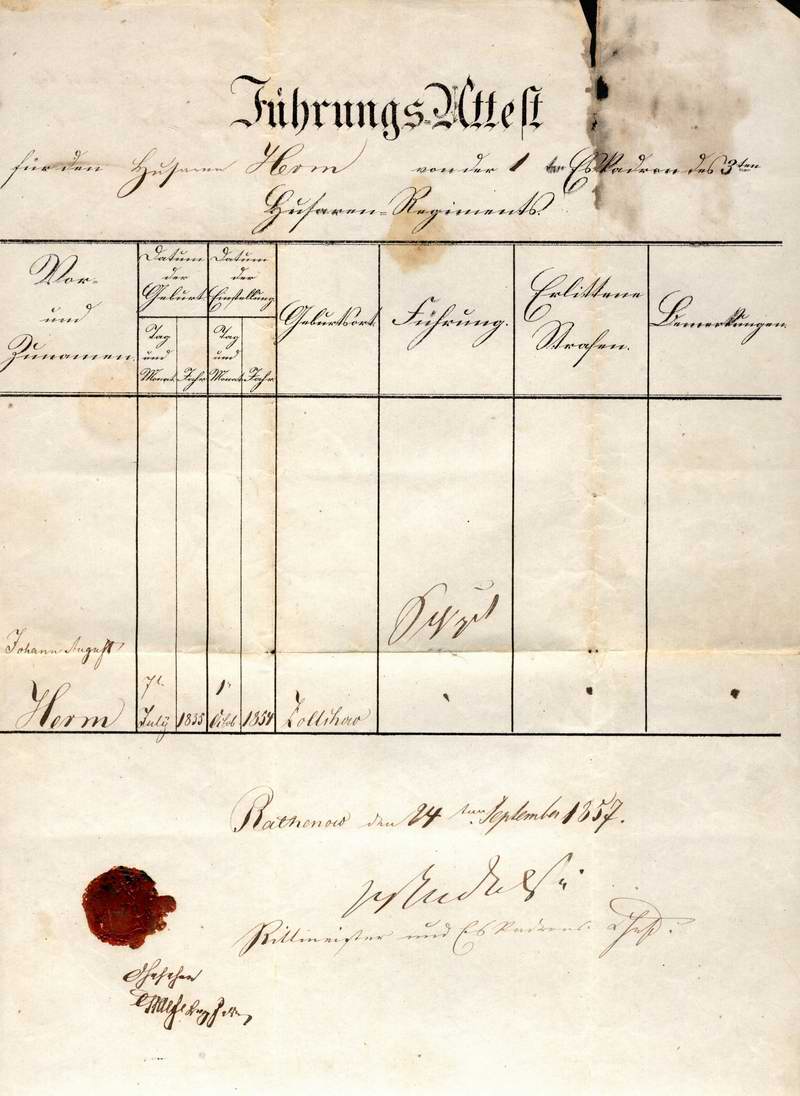 Führungs-Attest
für den Husaren Herm von der 1 ten Eskadron des 3ten
Husaren-Regiments.
Vor-
und
Zunamen.
Datum
der
Geburt
Tag
und
Monat.
Jahr
Datum
der
Einstellung
Tag
und
Monat
Jahr
Geburtsort.
Führung.
Erlittene
Strafen.
Bemerkungen.
Johann August
Herm
7t.
July
1835
1t
Octob.
1854
Zollchow
Sehr gut
Rathenow den 24 ten September 1857.
Rittmeister und Eskadrons-Chef.
Gesehen